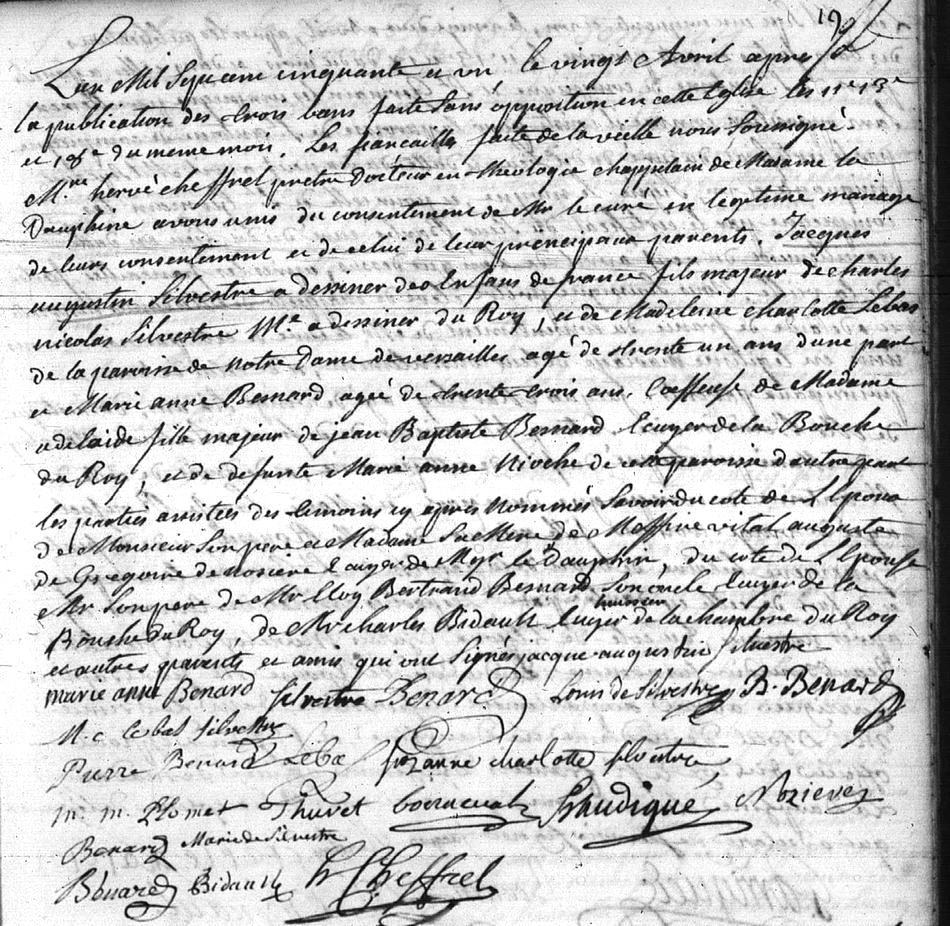 19
L'an Mil Sept cent cinquante et un, le vingt Avril apres
la publication des trois bans faite sans opposition en cette Eglise les 11e 13e
et 18e du meme mois. Les fiancailles faite de la vielle nous Soussigné
Mre hervé cheffrel pretre Docteur en theologie chappelain de Madame la
Dauphine avons unis du consentement de Mr le curé en legitime mariage
de leurs consentement et de celui de leur principaux parents. Jacques
augustin Silvestre a dessiner des Enfans de france fils majeur de charles
nicolas Silvestre Me a dessiner du Roy, et de Madeleine charlotte Lebas
de la paroisse de notre Dame de versailles agé de trente un ans d'une part
et Marie anne Besnard agée de trente trois ans. Coeffeuse de Madame
adelaide fille majeur de jean Baptiste Besnard Ecuyer de la Bouche
du Roy, et de defunte Marie anne Nioche de cette paroisse d'autre part
les parties assistées des temoins cy apres Nommés Savoir du cote de L'Epoux
de Monsieur Son pere et Madame Sa Mere de Messire vital auguste
de Gregoire de nosiere Ecuyer de Mgr le Dauphin, du cote de L'Epouse
Mr Son pere de Mr Eloy Bertrand Besnard Son oncle Ecuyer de la
Bouche du Roy, de Mr charles Bidault Ecuyer huissier de la chambre du Roy
et autres parents et amis qui ont Signés jacque augustin silvestre
marie anne Benard silvestre Benard Louis de Silvestre B. Benard
M. c Lebas silvestre
Pierre Benard Lebas suzanne charlotte silvestre
m. m. Plomet Thuret haudiqué Nozieres
Benard Marie de Silvestre
Bénard Bidault h Cheffrel